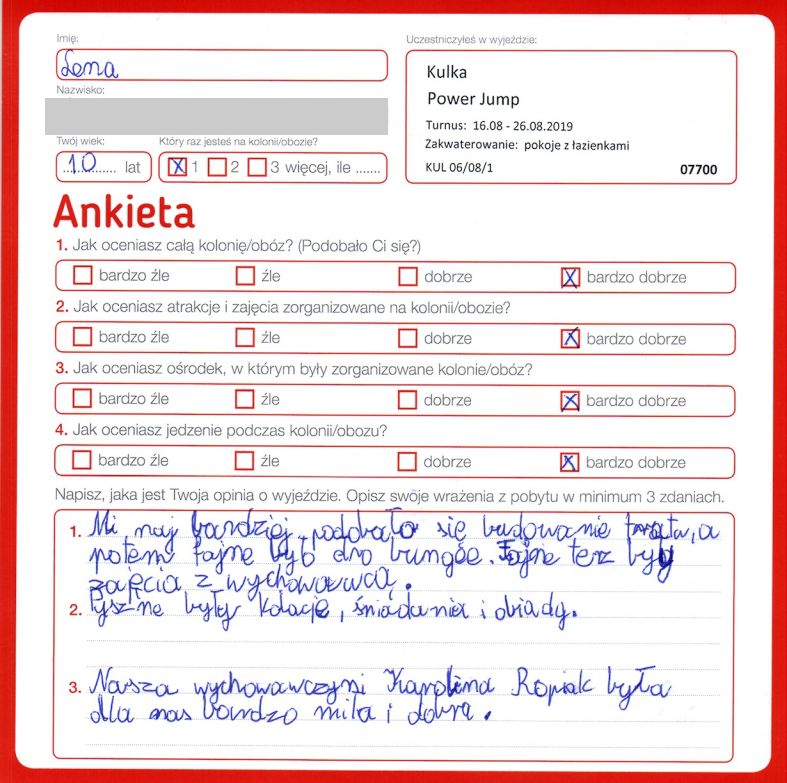 Imię:
Uczestniczyłeś w wyjeździe:
Lena
Kulka
Nazwisko:
Power Jump
Turnus: 16.08 - 26.08.2019
Twój wiek:
Który raz jesteś na kolonii/obozie?
Zakwaterowanie: pokoje z łazienkami
10 lat
X 1 2 3 więcej, ile .......
KUL 06/08/1
07700
Ankieta
1. Jak oceniasz całą kolonię/obóz? (Podobało Ci się?)
bardzo źle źle dobrze X bardzo dobrze
2. Jak oceniasz atrakcje i zajęcia zorganizowane na kolonii/obozie?
bardzo źle źle dobrze X bardzo dobrze
3. Jak oceniasz ośrodek, w którym były zorganizowane kolonie/obóz?
bardzo źle źle dobrze X bardzo dobrze
4. Jak oceniasz jedzenie podczas kolonii/obozu?
bardzo źle źle dobrze X bardzo dobrze
Napisz, jaka jest Twoja opinia o wyjeździe. Opisz swoje wrażenia z pobytu w minimum 3 zdaniach.
1. Mi naj bardziej podobało się budowanie , a
potem fajne było bungee. Fajne terz były
zajęcia z wychowawcą.
2. Pyszne były kolacje, śniadania i obiady.
3. Nasza wychowawczyni Karolina Ropiak była
dla nas bardzo miła i dobra.